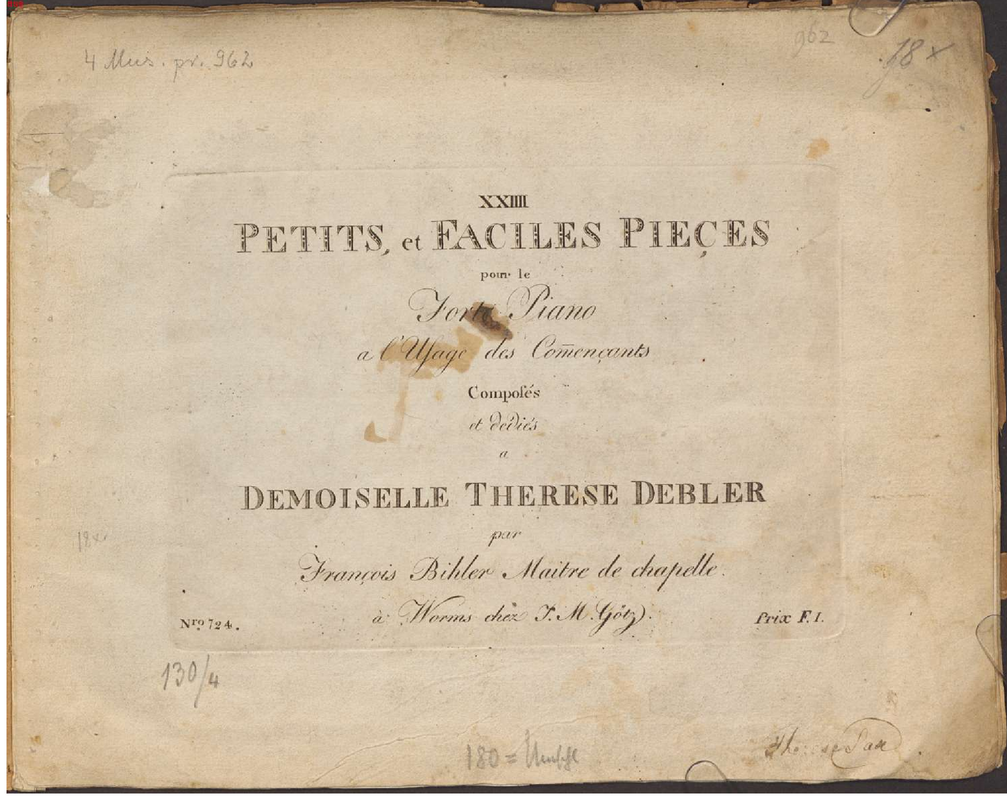 4 Mus. pr. 962
962
18x
XXIIII
PETITS, et FACILES PIEÇES
pour le
Forte Piano
a l'Uſage des Com̄ençants
Compoſés
et dediés
a
DEMOISELLE THERESE DEBLER
par
François Bihler Maitre de chapelle.
à Worms chéz J. M. Götz).
Nro 724.
Prix F. 1.
18x
130/4
180 =
Therese